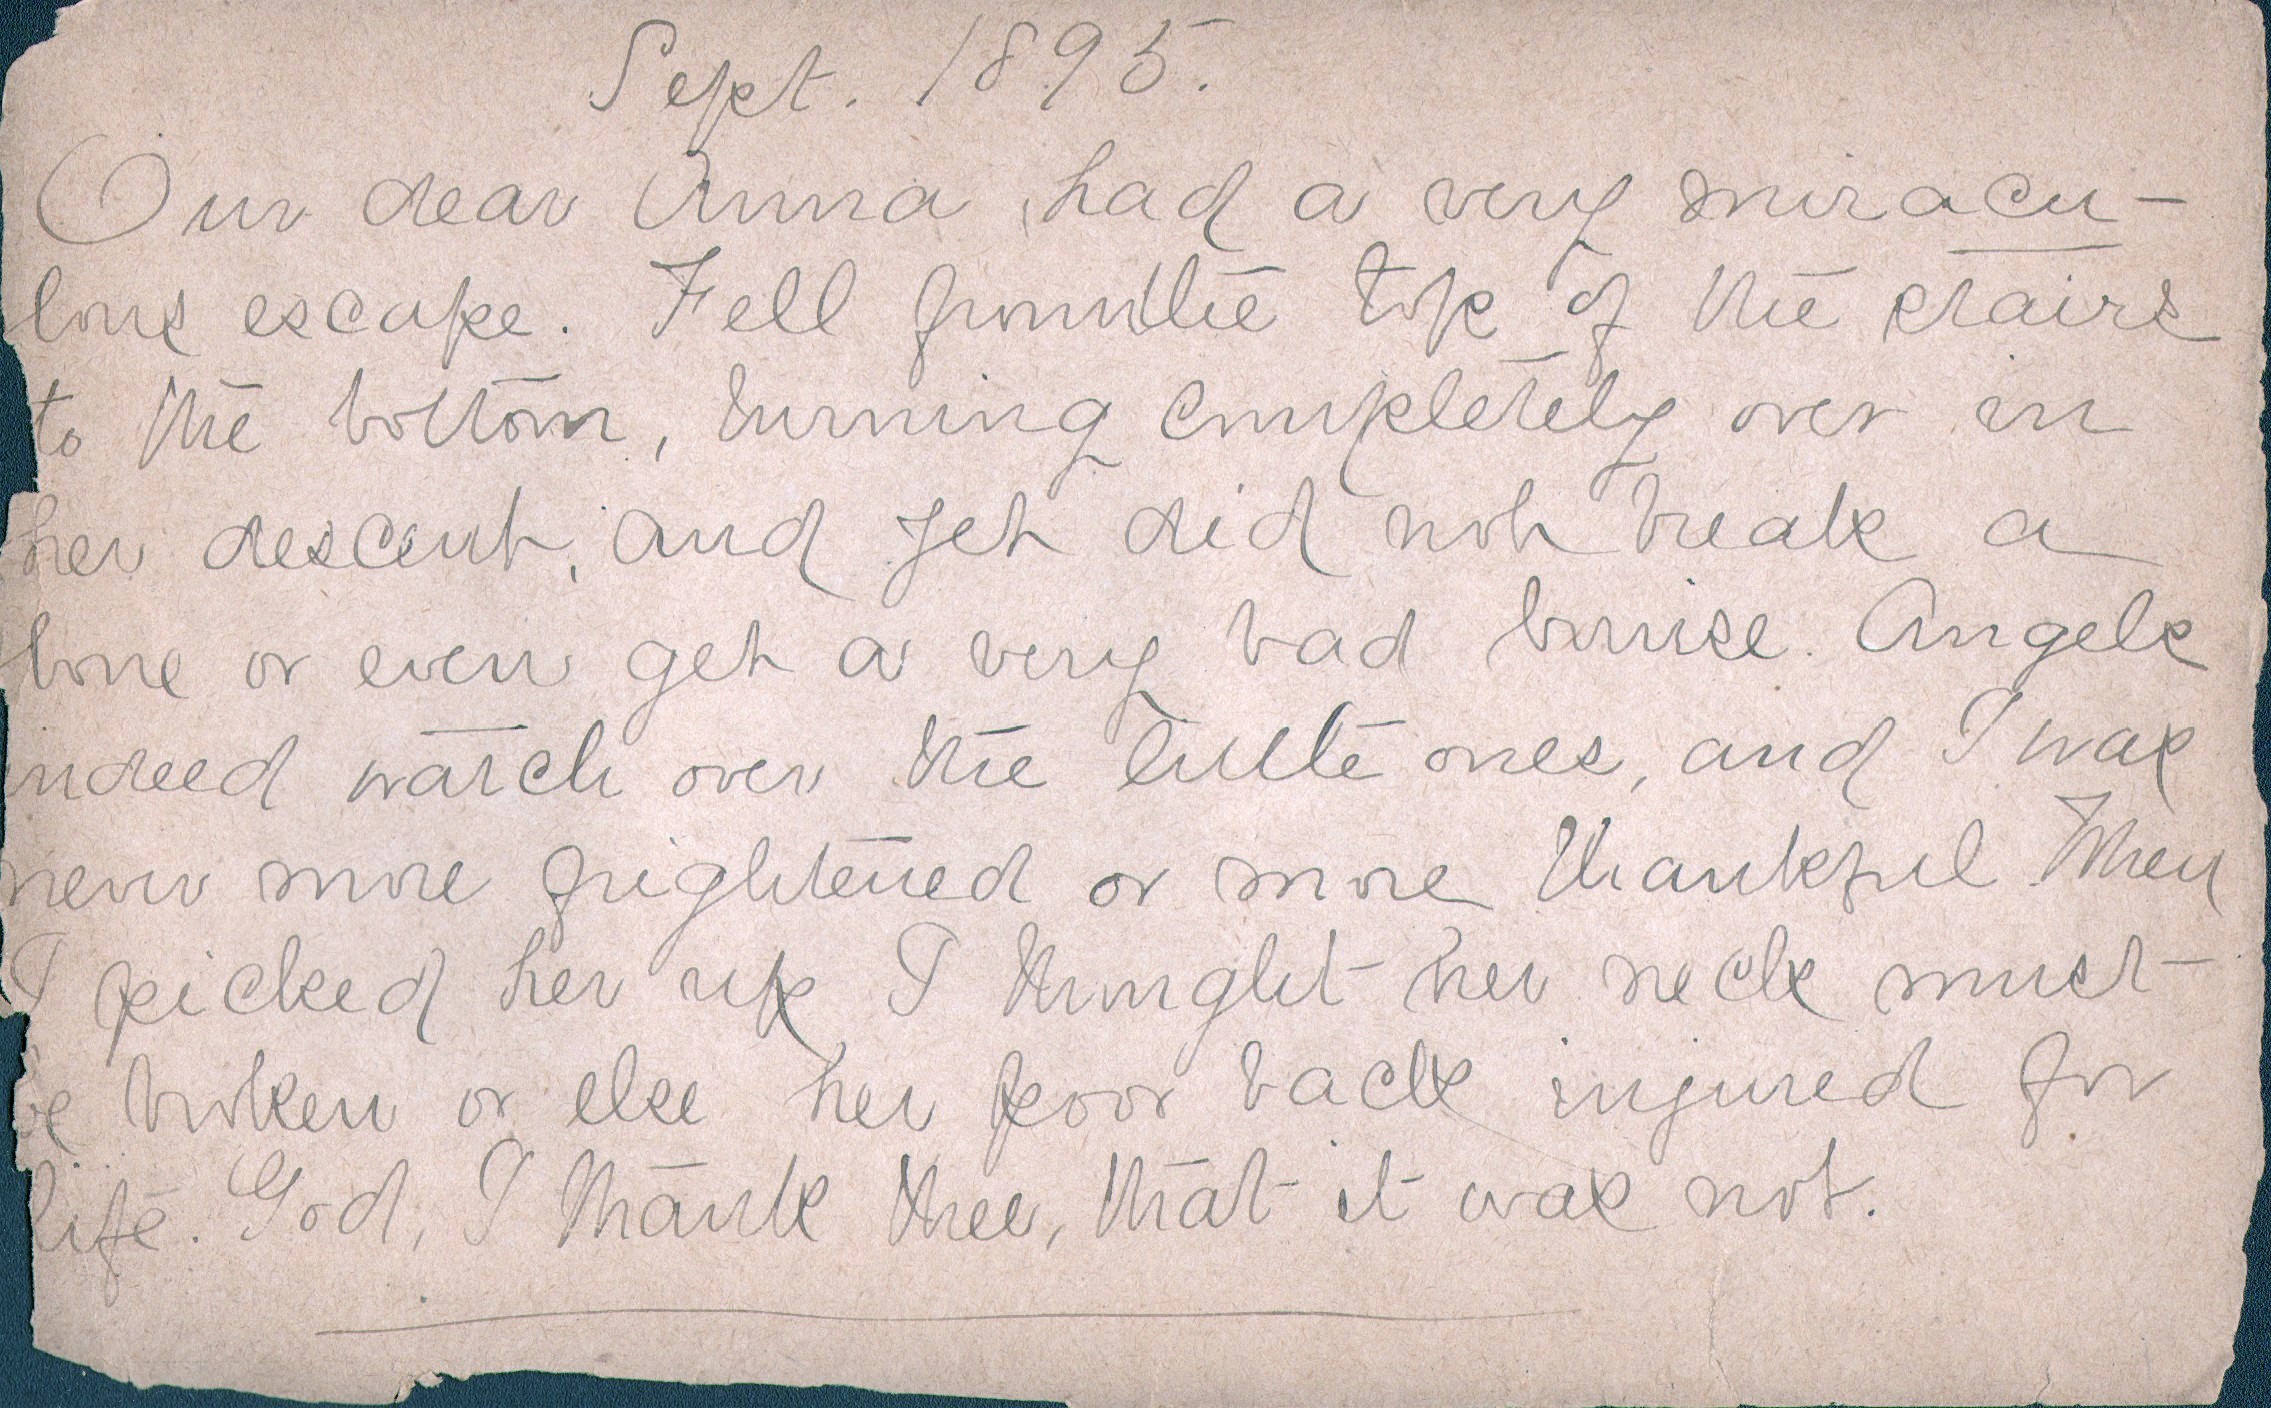 Sept. 1895.
Our dear Anna had a very miracu-
lous escape. Fell from the top of the stairs
to the bottom, turning completely over in
her descent, and yet did not break a
bone or even get a very bad bruise. Angels
indeed watch over the little ones, and I was
never more frightened or more thankful. When
I picked her up I thought her neck must
be broken or else her poor back injured for
life. God, I thank thee, that it was not.